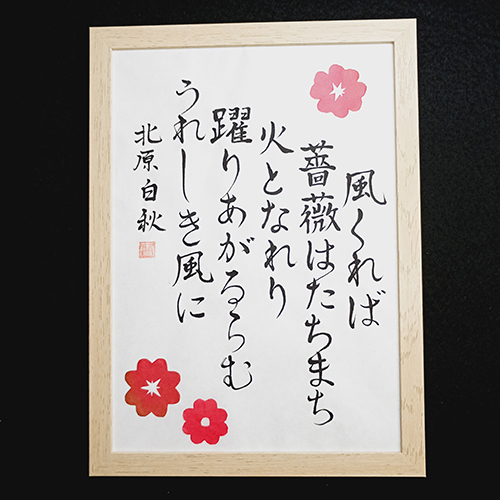 風くれば
薔薇はたちまち
火となれり
躍りあがるらむ
うれしき風に
北原白秋